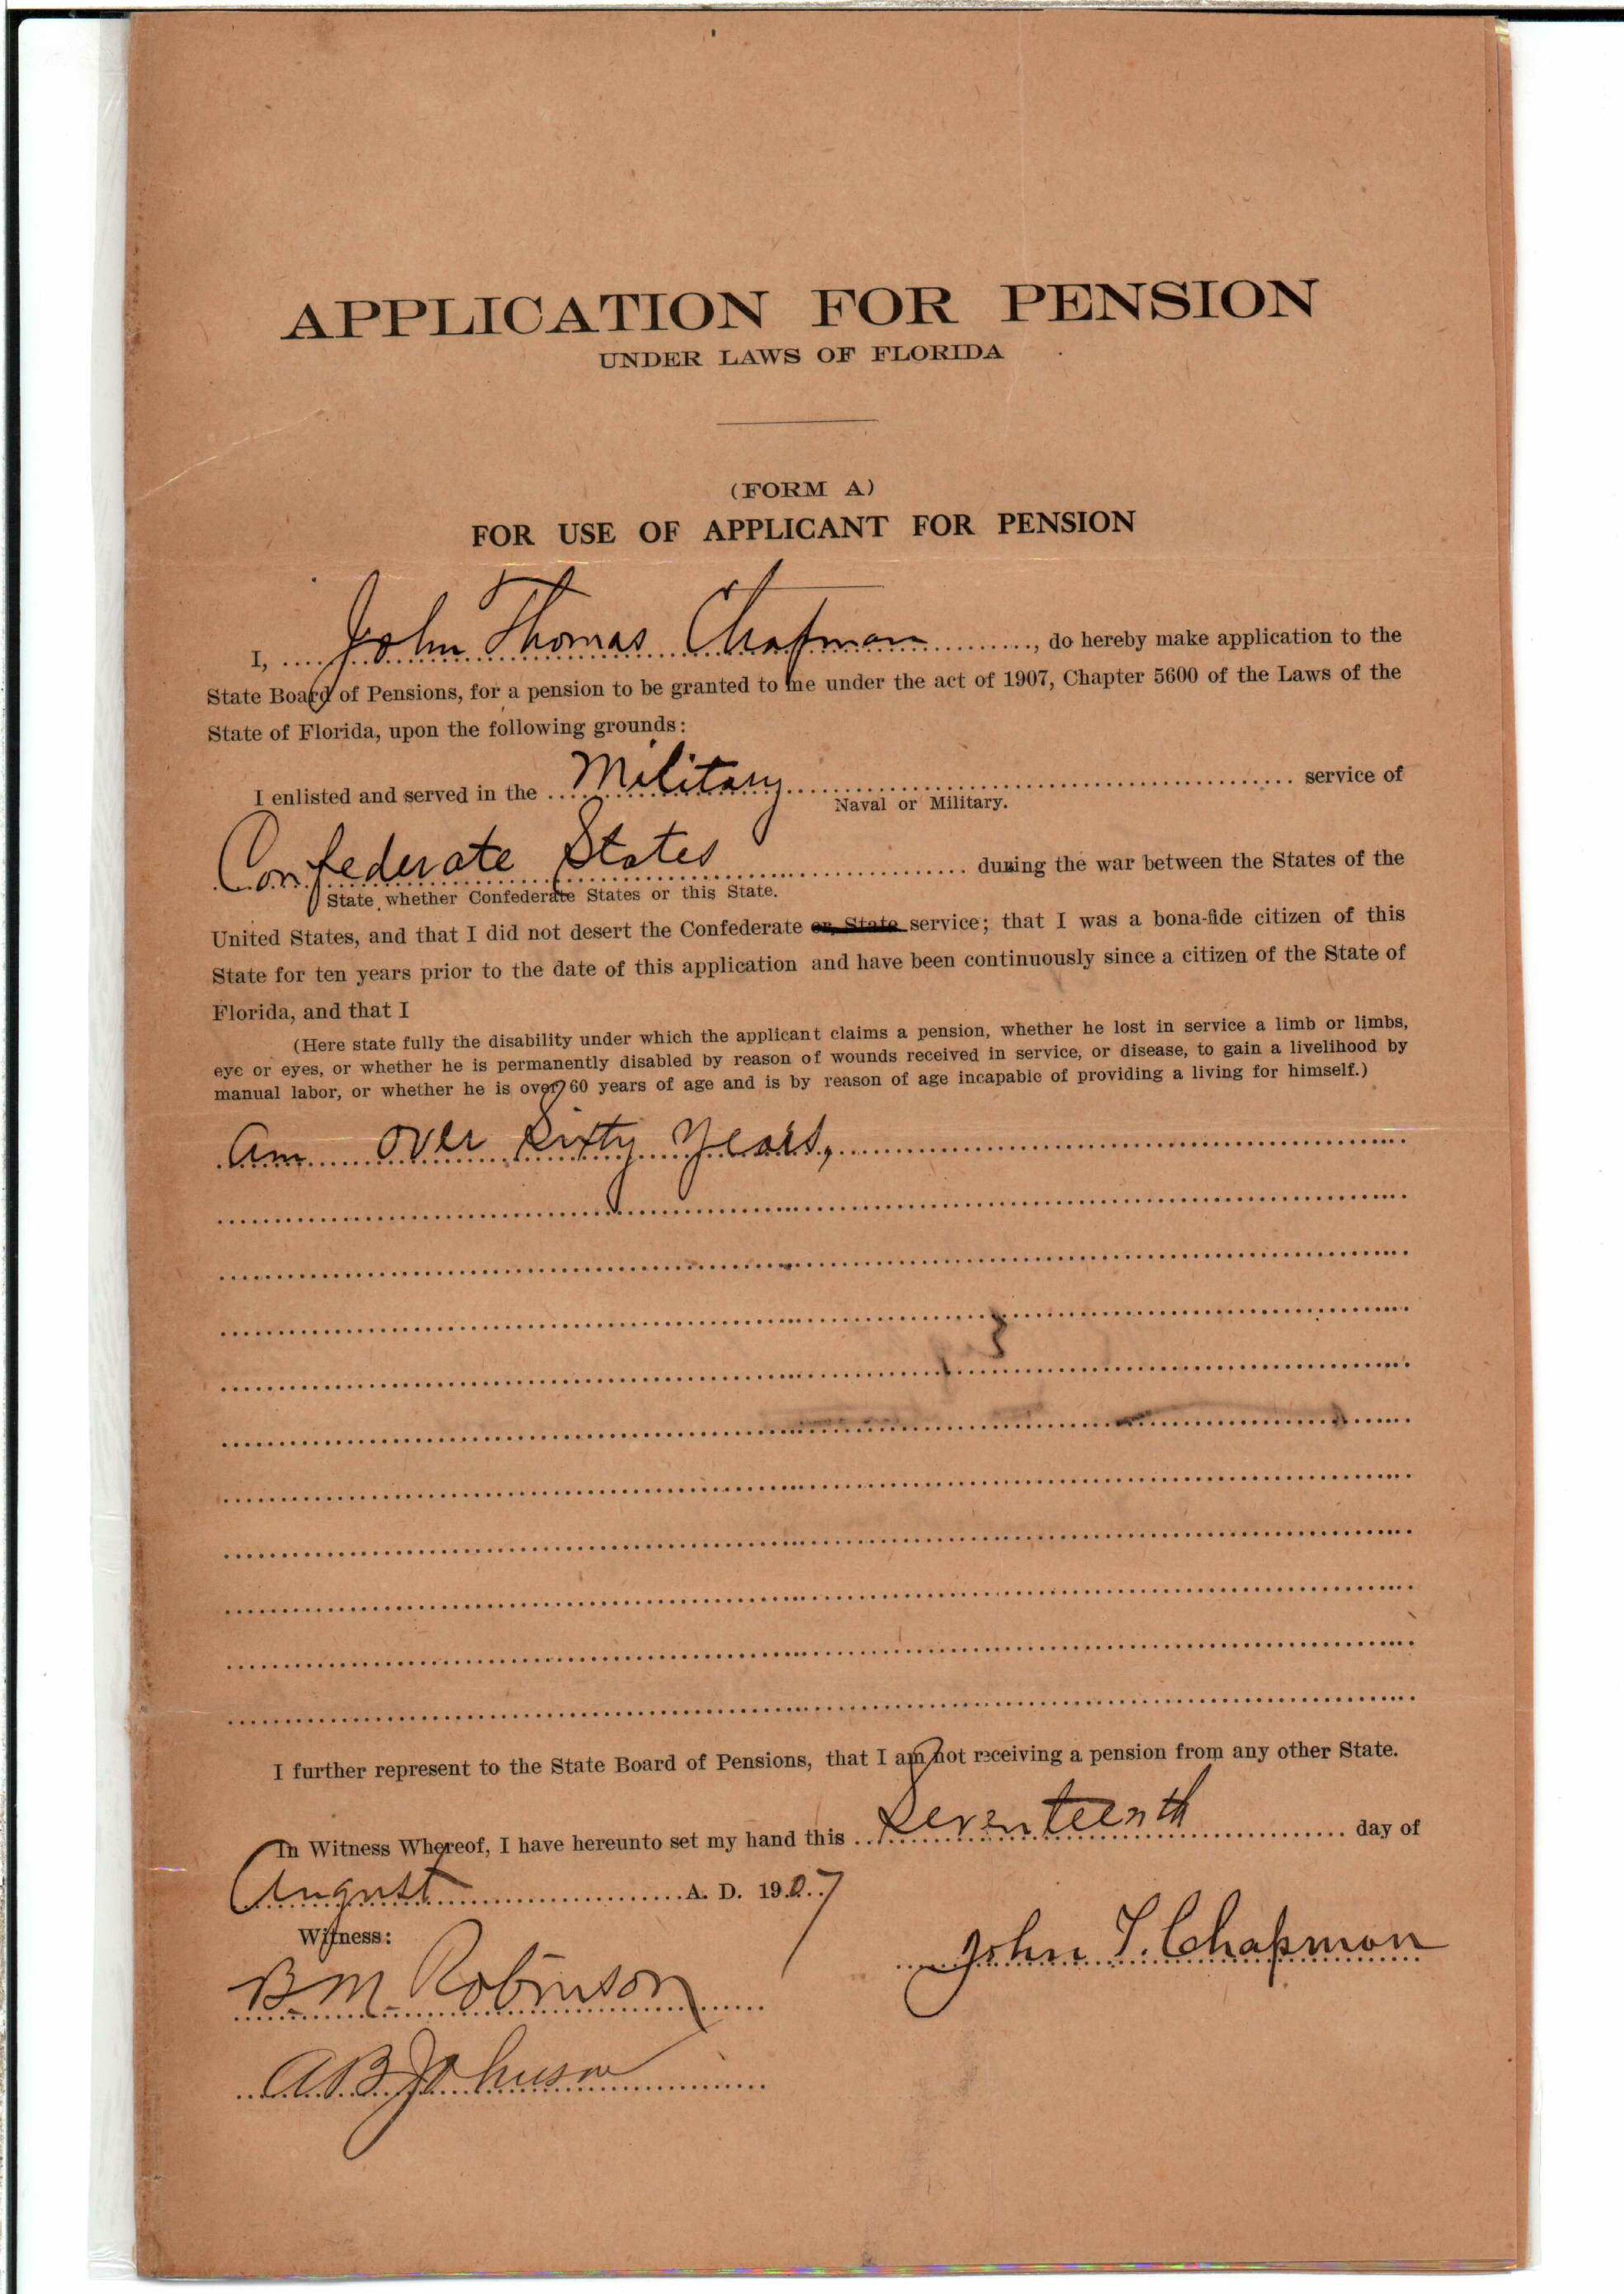 APPLICATION FOR PENSION
UNDER LAWS OF FLORIDA
(FORM A)
FOR USE OF APPLICANT FOR PENSION
I, John Thomas Chapman, do hereby make application to the
State Board of Pensions, for a pension to be granted to me under the act of 1907, Chapter 5600 of the Laws of the
State of Florida, upon the following grounds:
I enlisted and served in the Military service of
Naval or Military.
Confederate States during the war between the States of the
State whether Confederate States or this State.
United States, and that I did not desert the Confederate or State service; that I was a bona-fide citizen of this
State for ten years prior to the date of this application and have been continuously since a citizen of the State of
Florida, and that I
(Here state fully the disability under which the applicant claims a pension, whether he lost in service a limb or limbs,
eye or eyes, or whether he is permanently disabled by reason of wounds received in service, or disease, to gain a livelihood by
manual labor, or whether he is over 60 years of age and is by reason of age incapable of providing a living for himself.)
Am over Sixty Years,
I further represent to the State Board of Pensions, that I am not receiving a pension from any other State.
In Witness Whereof, I have hereunto set my hand this Seventeenth day of
August A. D. 1907
Witness:
John T. Chapman
B. M. Robinson
A B Johnson